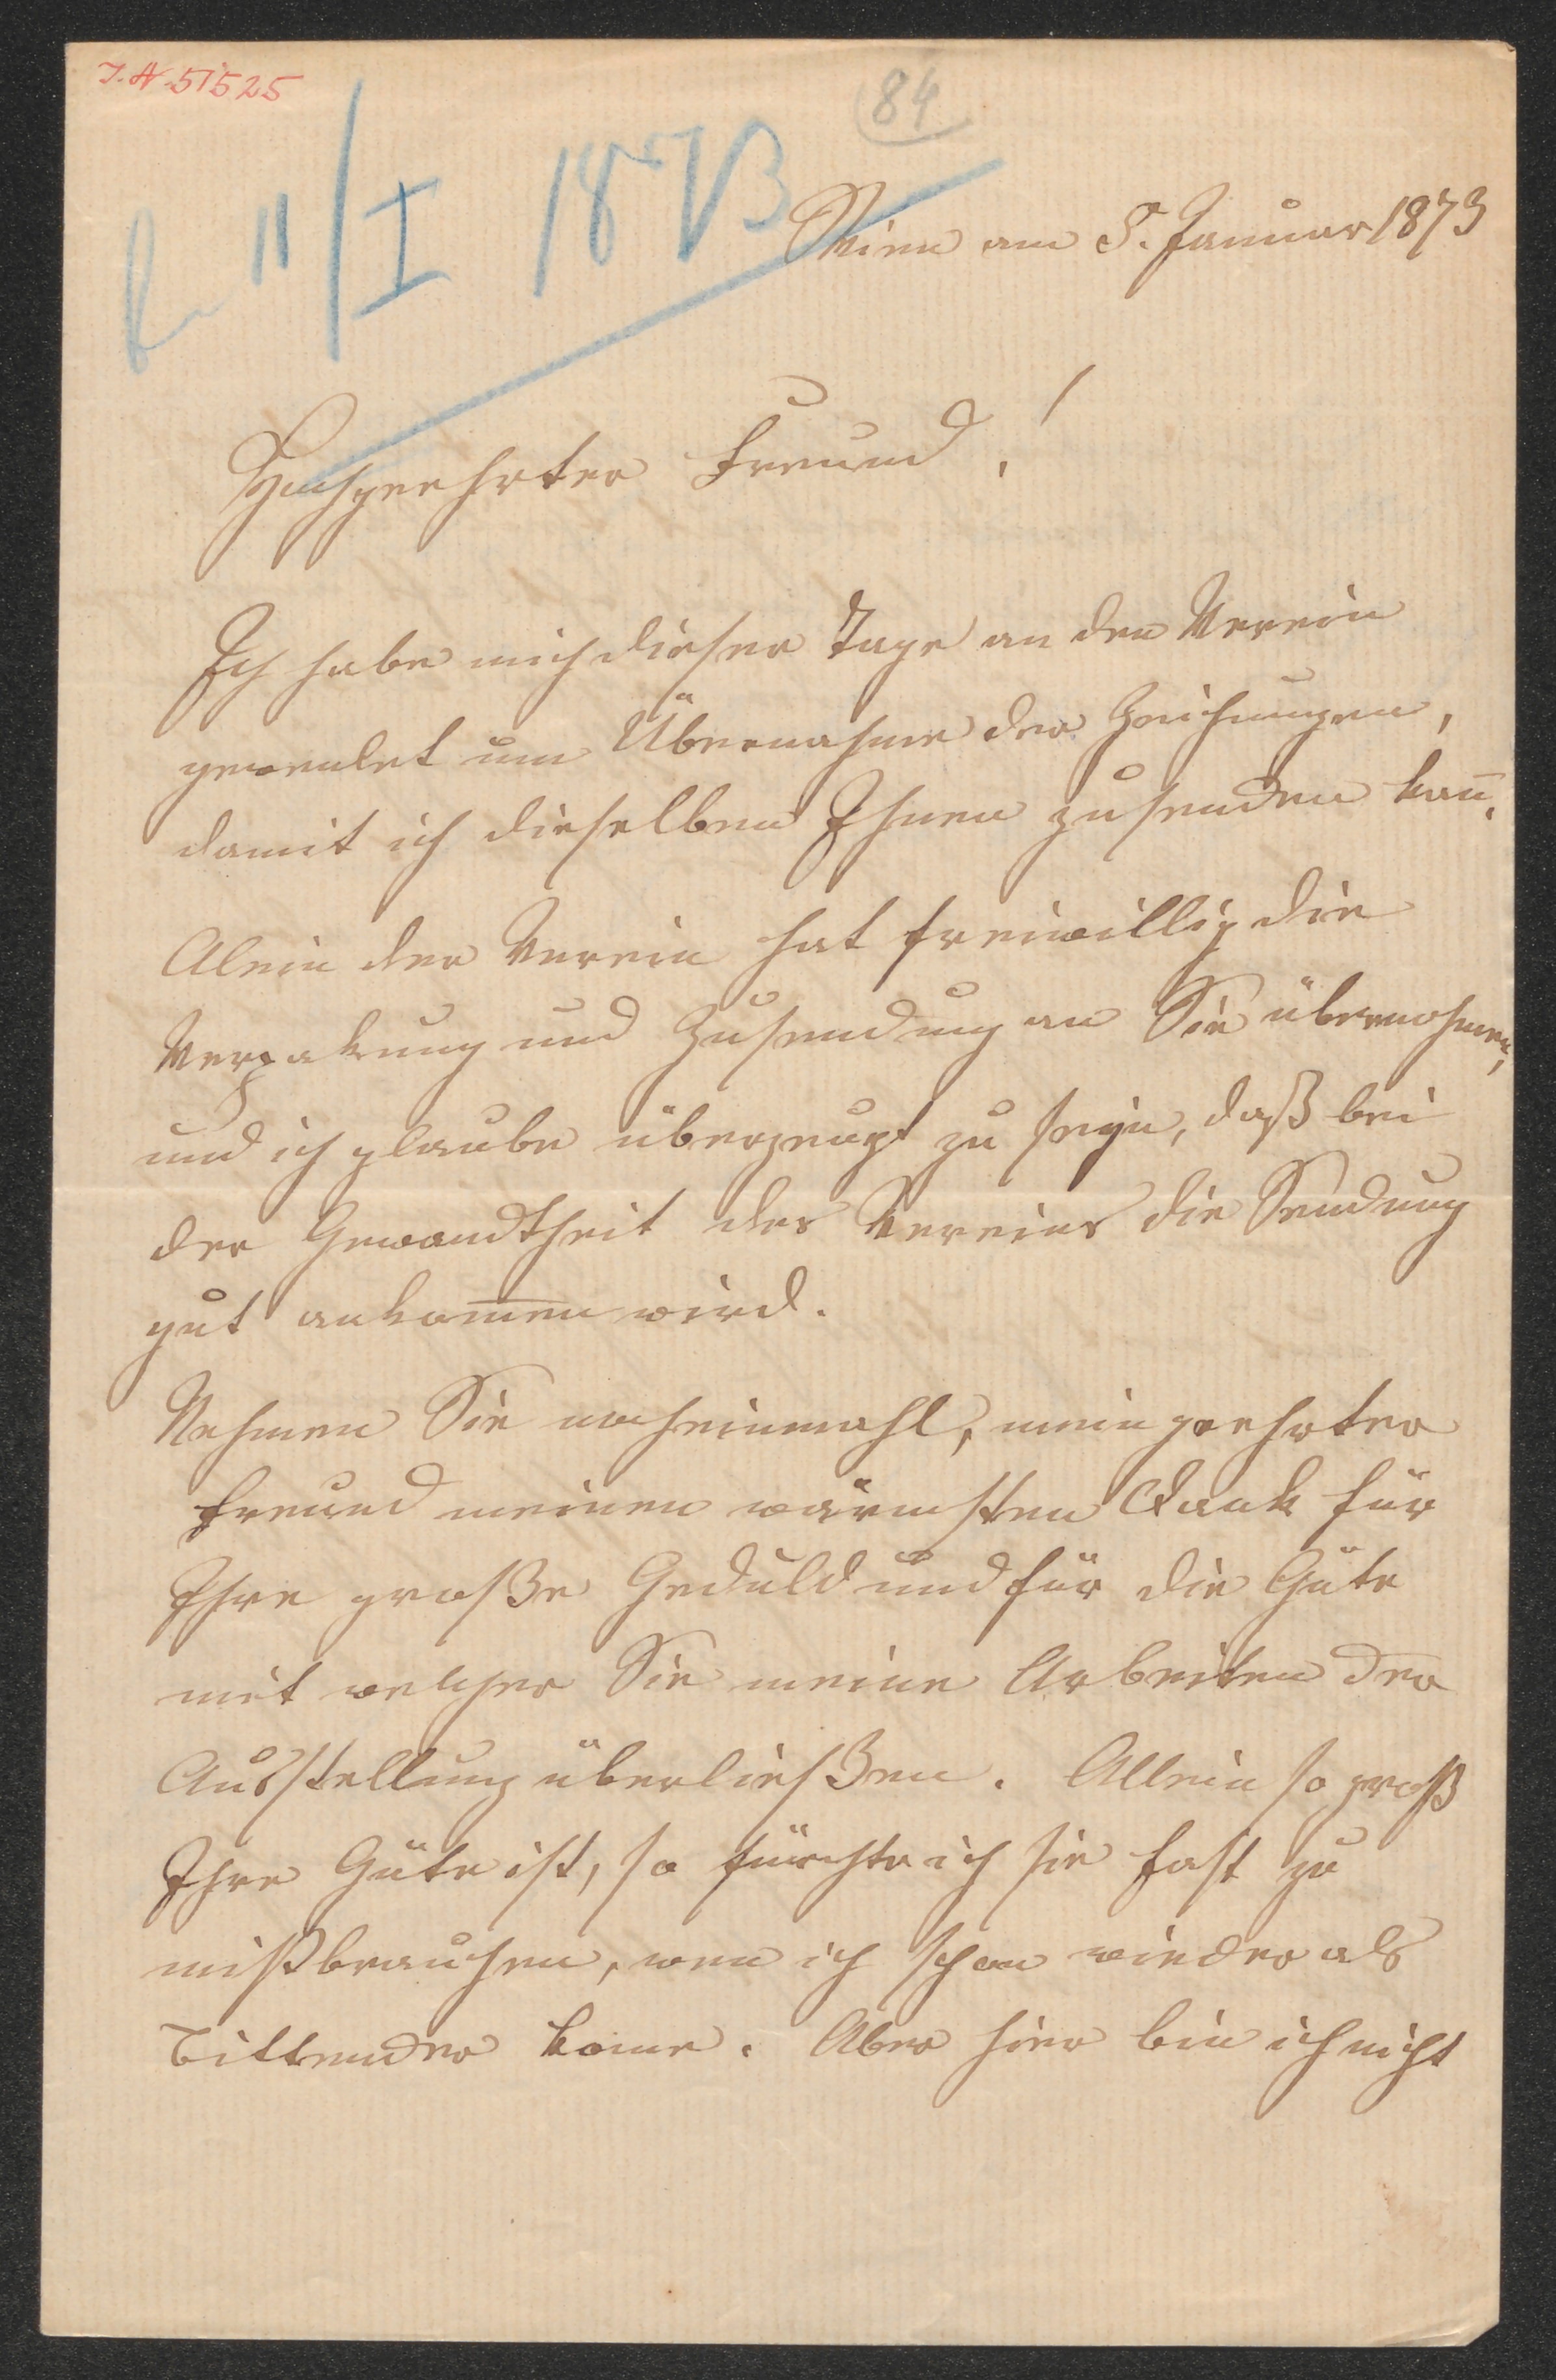 I. N. 51525
84
11/I 1873
Wien am 5. Januar 1873
Hochgeehrter Freund!
Ich habe mich dieser Tage an den Verein
gewendet um Übernahme der Zeichnungen,
damit ich dieselben Ihnen zusenden kan̄.
Alein der Verein hat freiwillig die
Verpakung und Zusendung an Sie übernohmen,
und ich glaube überzeugt zu seyn, daß bei
der Gewandtheit des Vereins die Sendung
gut ankom̄en wird.
Nehmen Sie nocheinmahl, mein geehrter
Freund meinen wärmsten Dank für
Ihre große Geduld und für die Güte
mit welcher Sie meine Arbeiten der
Ausstellung überließen. Allein so groß
Ihre Güte ist, so fürchte ich sie fast zu
mißbrauchen, wen ich schon wieder als
Bittender kome. Aber hier bin ich nicht